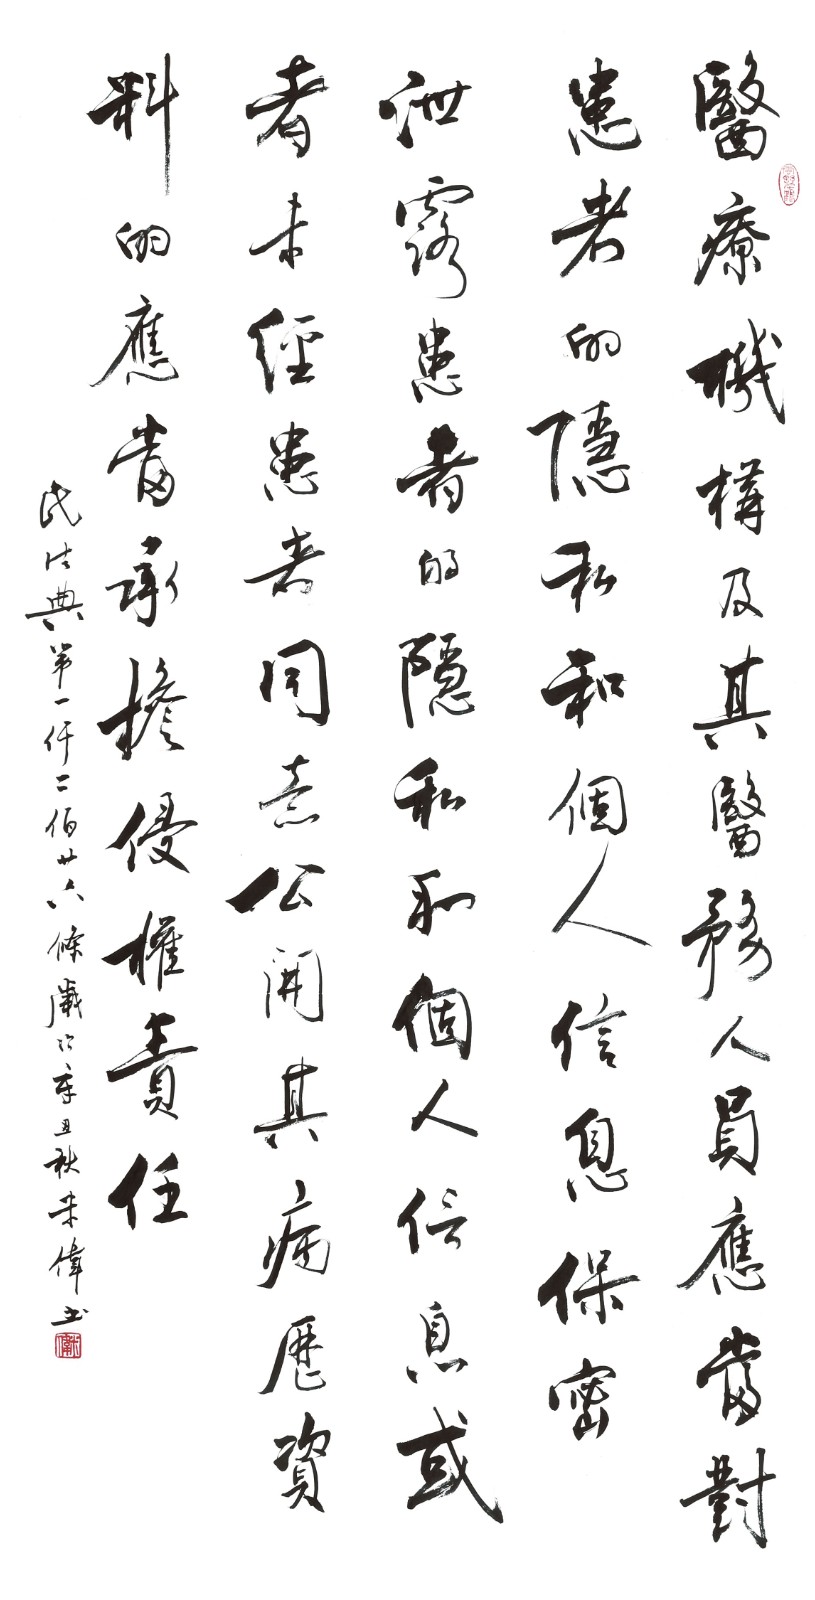 醫療機構及其醫務人員應當對
患者的隱私和個人信息保密
泄露患者的隱私和個人信息或
者未經患者同意公開其病歷資
料的應當承擔侵權責任
民法典第一仟二佰廿六條歲次辛丑秋朱偉書